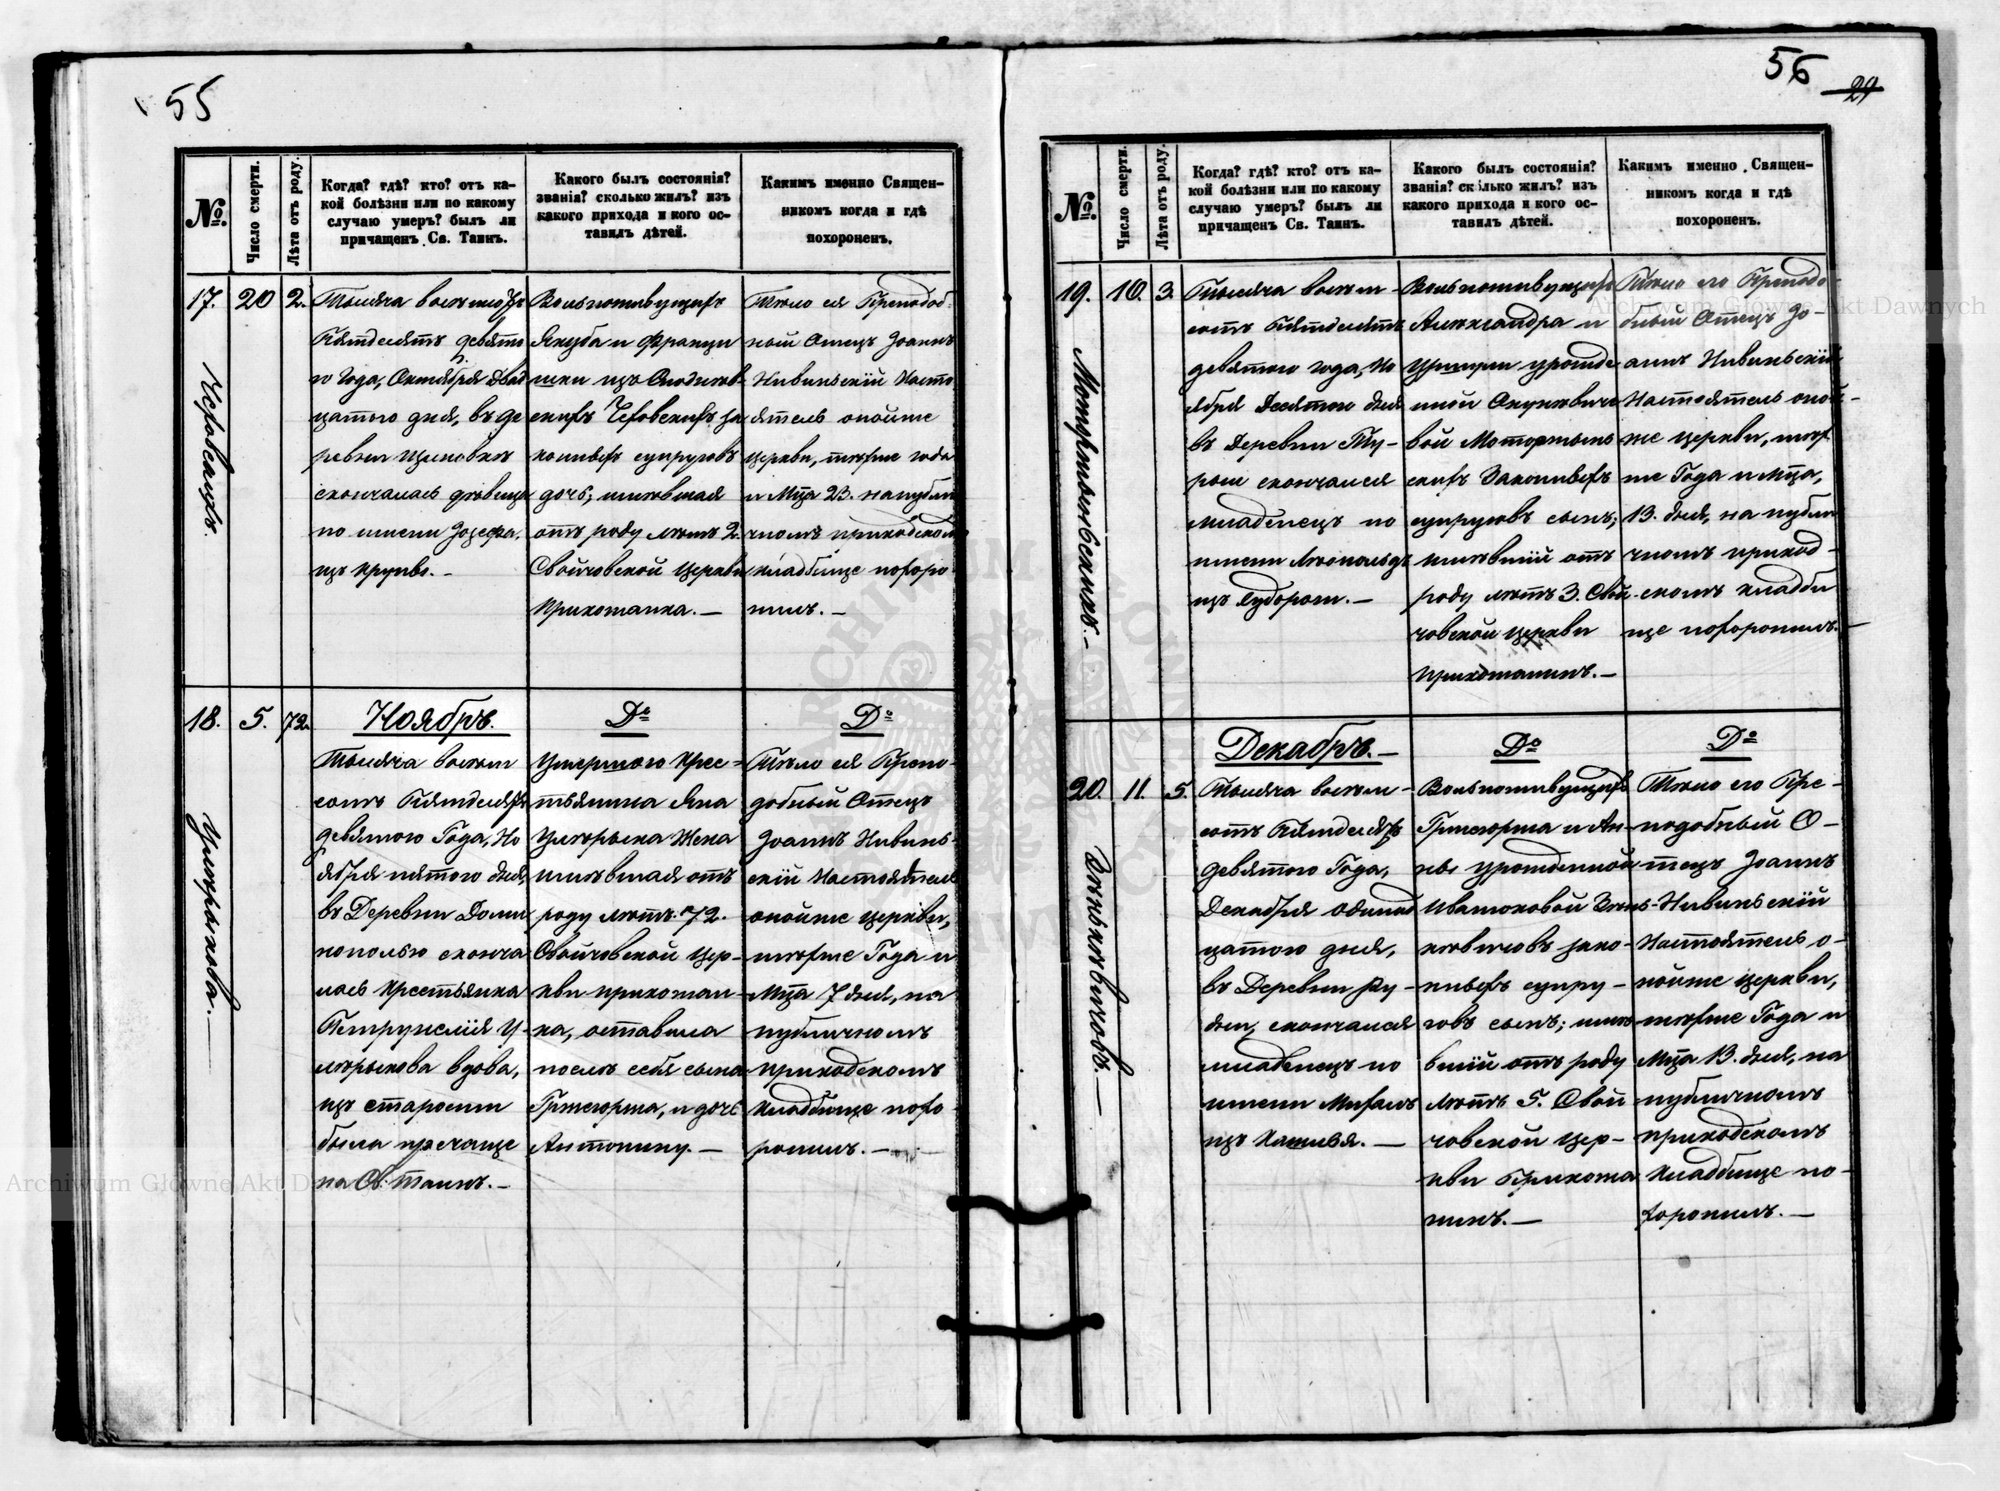 55
№.
Число смерти.
Лѣта отъ роду.
Когда? гдѣ? кто? отъ ка-
кой болѣзни или по какому
случаю умеръ? былъ ли
причащенъ Св. Таинъ.
Какого былъ состоянія?
званія? сколько жилъ? изъ
какого прихода и кого ос-
тавилъ дѣтей.
Какимъ именно Священ-
никомъ когда и гдѣ
похороненъ.
17.
20
2.
Тысяча восемьсотъ
Пятдесятъ девято
го Года, Октября двад
цатого дня, въ де
ревни
скончалась дѣвица
по имени Іозефа,
изъ крупъ. -
Вольноживущихъ
Якуба и Франци
шки изъ
за
конныхъ супруговъ
дочь; жившая
отъ роду лѣтъ 2.
Свойчовской Церкви
Прихожанка. —
Тѣло ея Преподоб-
ной Отецъ Іоаннъ
Насто
ятель онойже
церкви, тогоже года
и Мца 23. на публи
чномъ приходскомъ
кладбище похоро
нилъ. —
18.
5.
72.
Ноябръ.
Тысяча восем
сотъ Пятдесятъ
девятого Года, Но
ября пятого дня,
въ Деревни Доми
нополью сконча
лась крестьянка
Петрунелія
вдова,
изъ старости
была
на Св. Таинъ. —
До
Умершого Крес-
тьянина Яна
Жена
жившая отъ
роду лѣтъ 72.
Свойчовской Цер-
кви прихожан-
ка, оставила
послѣ себя сына
Григорія, и дочь
Антонину. —
До
Тѣло ея Препо-
добный Отецъ
Іоаннъ
Настоятель
онойже церкви,
тогоже Года и
Мца 7 дня, на
публичномъ
приходскомъ
кладбище похо
ронилъ. —
56
29
№.
Число смерти.
Лѣта отъ роду.
Когда? гдѣ? кто? отъ ка-
кой болѣзни или по какому
случаю умеръ? былъ ли
причащенъ Св. Таинъ.
Какого былъ состоянія?
званія? сколько жилъ? изъ
какого прихода и кого ос-
тавилъ дѣтей.
Какимъ именно Священ-
никомъ когда и гдѣ
похороненъ.
19.
10.
3.
Тысяча восем-
сотъ Пятдесятъ
девятого года, Но
ября Десятого дня
въ Деревни Ту-
скончался
младенецъ по
имени Леопольдъ
изъ Судорги. —
Вольноживущихъ
Александра и
урожде
нной
вой
скихъ Законныхъ
супруговъ сынъ;
жившій отъ
роду лѣтъ 3. Свой
човской церкви
Прихожанинъ. —
Тѣло его Преподо-
бный Отецъ Іо-
аннъ
Настоятель оной-
же церкви, того
же Года и Мца,
13. дня, на публи
чномъ приход-
скомъ кладби
ще похоронилъ. —
20.
11.
5.
Декабръ. —
Тысяча восем-
сотъ Пятдесятъ
девятого Года,
Декабря одинад
цатого дня,
въ Деревни Ру-
дни, скончался
младенецъ по
имени
изъ Кашля. —
До
Вольноживущихъ
Григорія и Ан-
ны урожденной
зако-
нныхъ супру-
говъ сынъ; жи
вшій отъ роду
лѣтъ 5. Свой
човской Цер-
кви Прихожа
нинъ. —
До
Тѣло его Пре-
подобный О-
тецъ Іоаннъ
Настоятель о-
нойже церкви,
тогоже Года и
Мца 13. дня, на
публичномъ
приходскомъ
кладбище по-
хоронилъ. —
Archiwum Główne Akt Dawnych